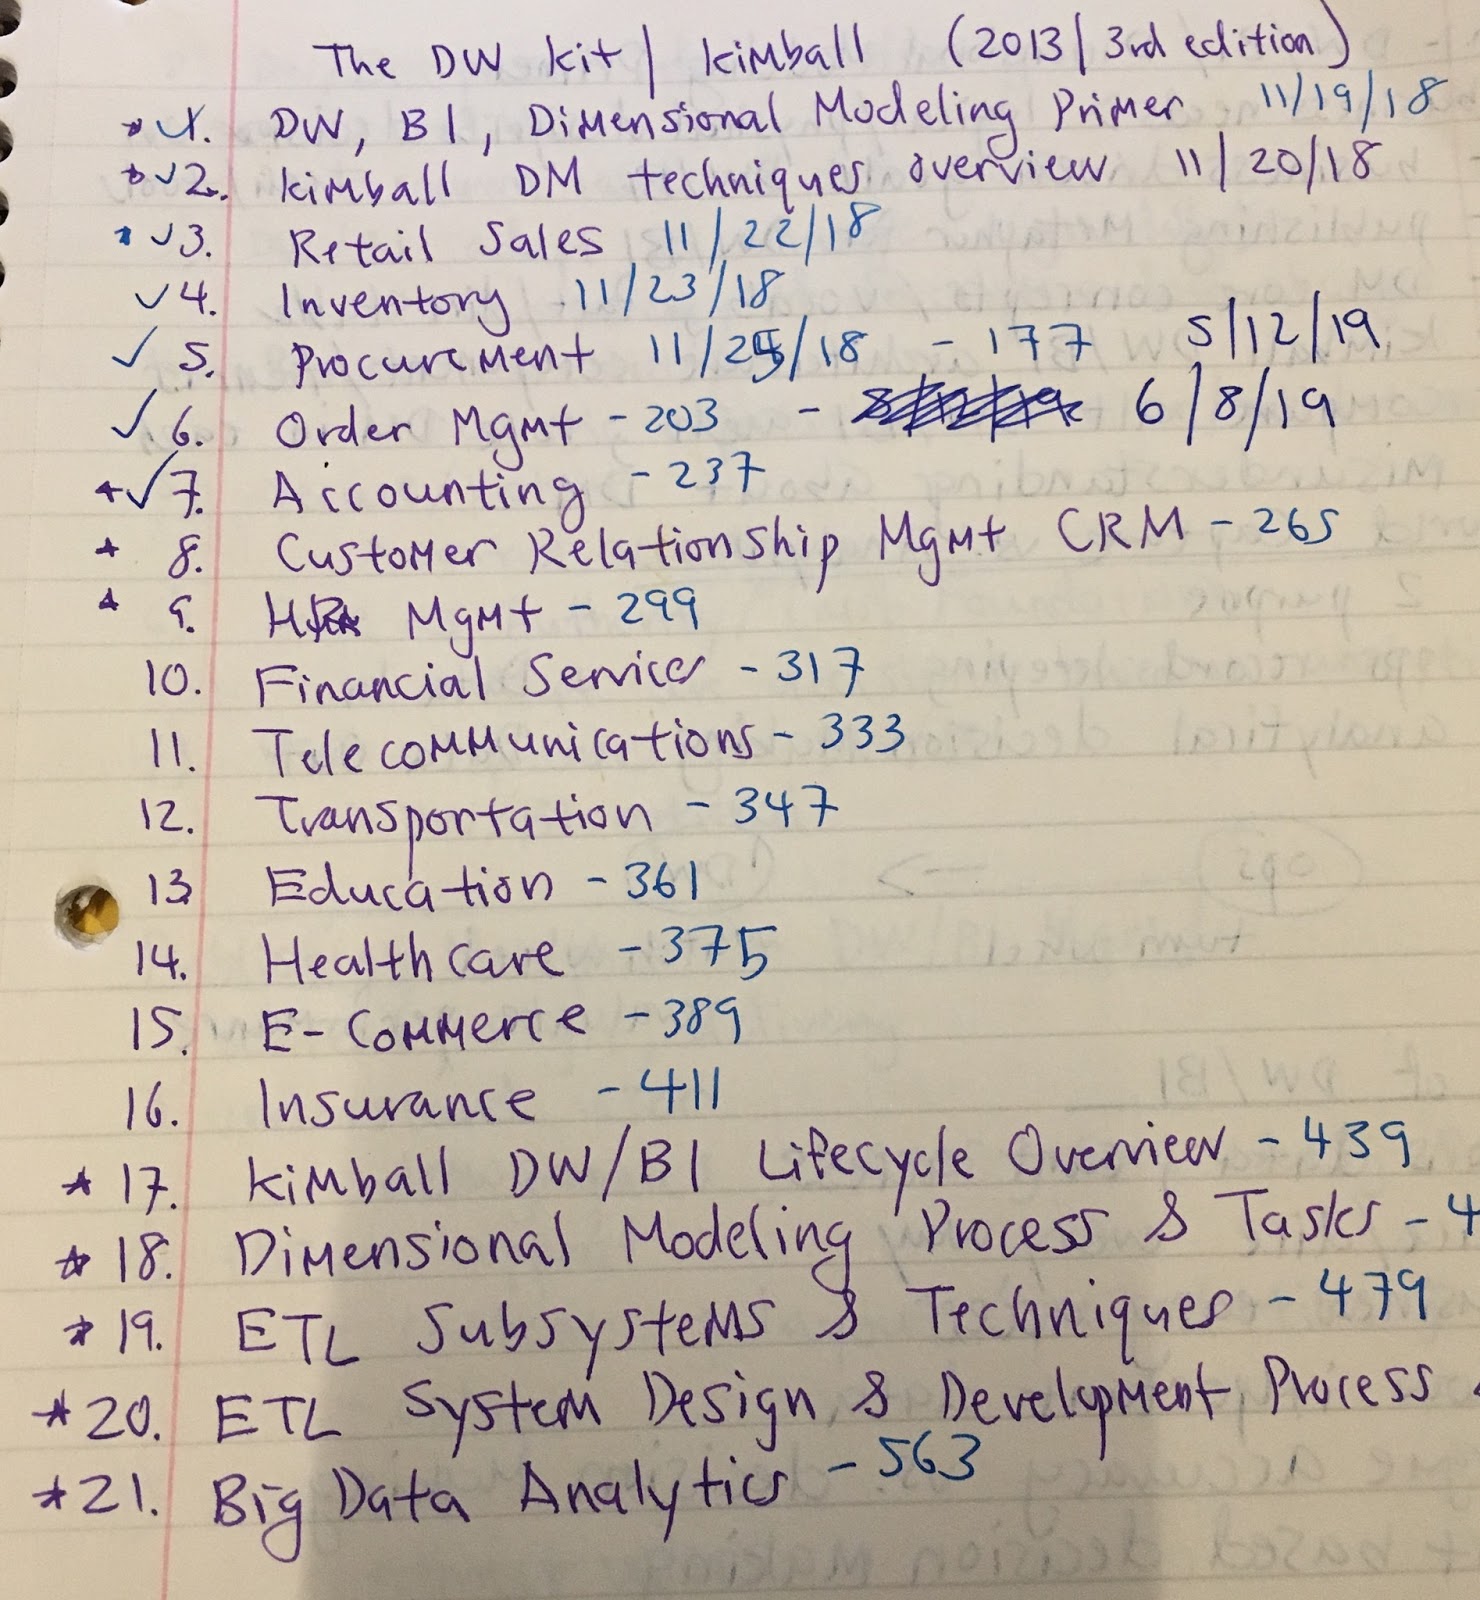 The DW kit | Kimball (2013 | 3rd edition)
* ✓ 1. DW, BI, Dimensional Modeling Primer 11/19/18
* ✓ 2. Kimball DM techniques overview 11/20/18
* ✓ 3. Retail Sales 11/22/18
✓ 4. Inventory 11/23/18
✓ 5. Procurement 11/25/18 - 177 5/12/19
✓ 6. Order Mgmt - 203 - 6/8/19
* ✓ 7. Accounting - 237
* 8. Customer Relationship Mgmt CRM - 265
* 9. HR Mgmt - 299
10. Financial Services - 317
11. Telecommunications - 333
12. Transportation - 347
13 Education - 361
14. Healthcare - 375
15. E-Commerce - 389
16. Insurance - 411
* 17. Kimball DW/BI Lifecycle Overview - 439
* 18. Dimensional Modeling Process & Tasks - 4
* 19. ETL Subsystems & Techniques - 479
* 20. ETL System Design & Development Process
* 21. Big Data Analytics - 563